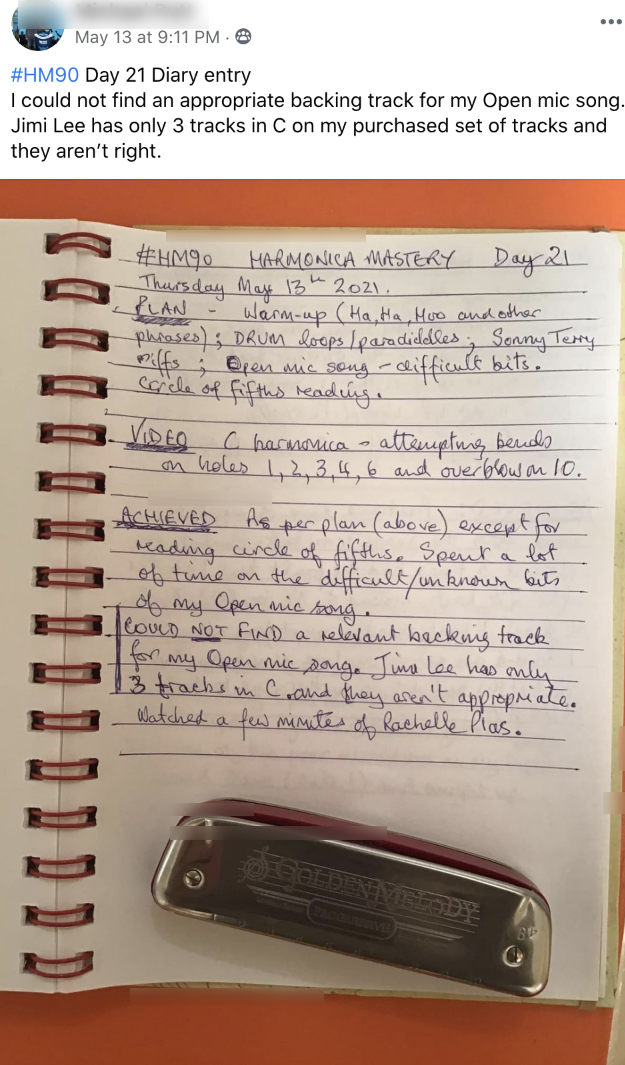 May 13 at 9:11 PM ·
#HM90 Day 21 Diary entry
I could not find an appropriate backing track for my Open mic song.
Jimi Lee has only 3 tracks in C on my purchased set of tracks and
they aren't right.
#HM90 HARMONICA MASTERY Day 21
Thursday May 13th 2021.
PLAN - Warm-up (Ha, Ha, Hoo and other
phrases) ; DRUM loops/paradiddles ; Sonny Terry
riffs ; Open mic song - difficult bits.
Circle of fifths reading.
VIDEO C harmonica - attempting bends
on holes 1, 2, 3, 4, 6 and overblow on 10.
ACHIEVED As per plan (above) except for
reading circle of fifths. Spent a lot
of time on the difficult/unknown bits
of my Open mic song.
COULD NOT FIND a relevant backing track
for my Open mic song. Jimi Lee has only
3 tracks in C and they aren't appropriate.
Watched a few minutes of Rachelle Plas.
GOLDEN MELODY
PROGRESSIVE